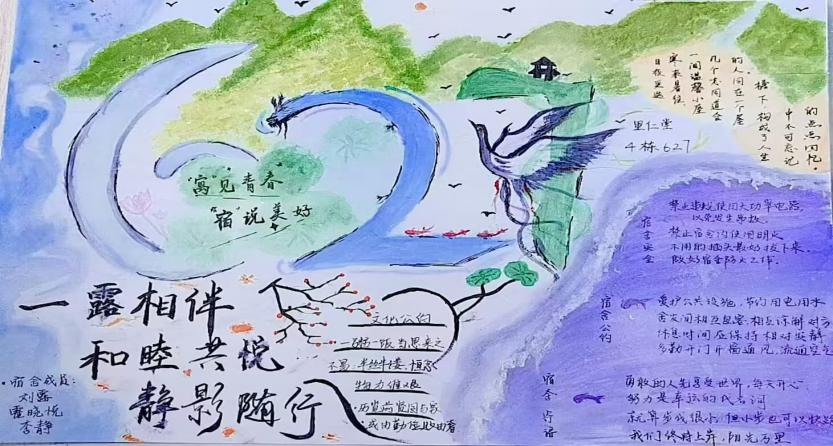 627
"寓"见青春
"宿"说美好
里仁堂
4栋627
的人同在一个屋
几个志同道合
一间温馨小屋
寒来暑往
日夜更迭
檐下构成了人生
中不可忘记
的点点回忆.
一露相伴
和睦共悦
静影随行
·宿舍成员:
刘露
曹晓悦
李静
文化公约
一粥一饭当思来之
不易,半丝半缕,恒念
物力维艰
·历览前贤国与家
成由勤俭败由奢
宿舍安全
禁止违规使用大功率电器,
禁止宿舍内使用明火
不用的插头最好拔下来.
做好宿舍防火工作.
宿舍公约
爱护公共设施,节约用电用水
舍友间相互包容,相互谅解
休息时间应保持相对安静
多勤开门开窗通风,流通空气
宿舍
勇敢的人先享受世界,每天开心
努力是幸运的代名词
就算步伐很小,但小步也可以
我们终将上岸,阳光万里